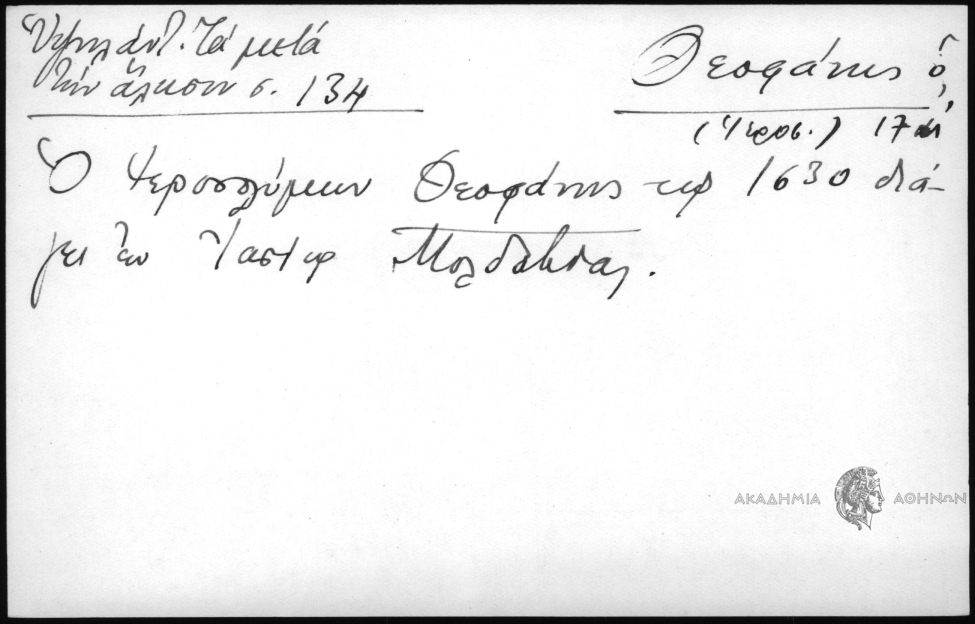 Ὑψηλάντ. Τά μετά
τήν ἅλωσιν σ. 134
Θεοφάνης ὁ Γ΄,
(Ἱεροσ.) 17
Ὁ Ἱεροσολύμων Θεοφάνης τῷ 1630 διά-
γει ἐν Ἰασίῳ Μολδαβίας.
ΑΚΑΔΗΜΙΑ ΑΘΗΝΩΝ